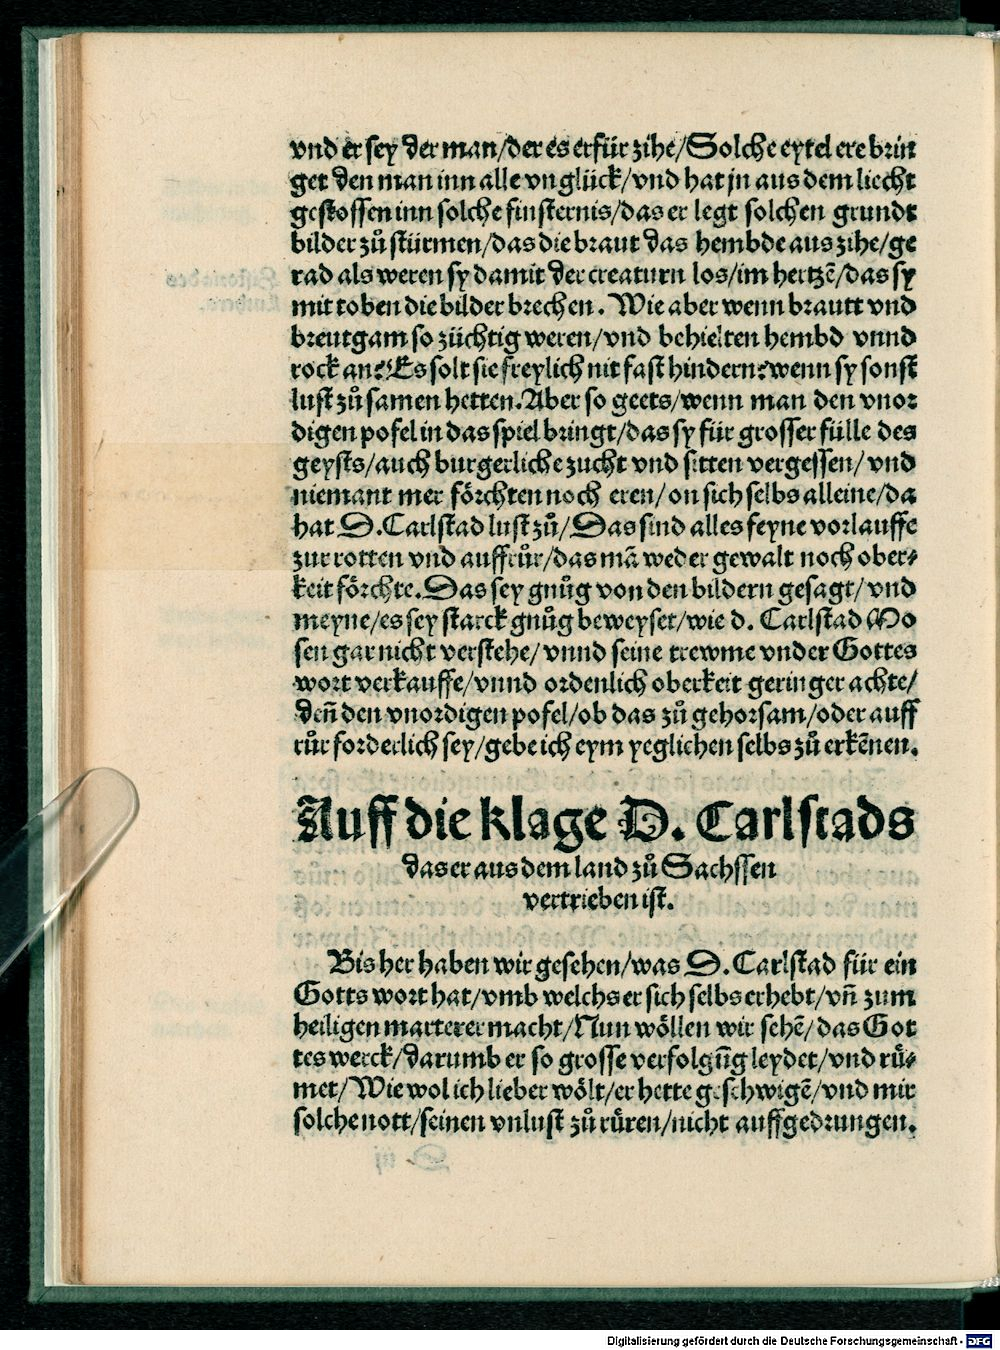 vnd er sey der man/der es erfür zihe/Solche eytel ere brin
get den man inn alle vnglück/vnd hat jn aus dem liecht
gestossen inn solche finsternis/das er legt solchen grundt
bilder zů stürmen/das die braut das hembde aus zihe/ge
rad als weren sy damit der creaturn los/im hertzẽ/das sy
mit toben die bilder brechen. Wie aber wenn brautt vnd
breutgam so züchtig weren/vnd behielten hembd vnnd
rock an? Es solt sie freylich nit fast hindern: wenn sy sonst
lust zů samen hetten. Aber so geets/wenn man den vnor
digen pofel in das spiel bringt/das sy für grosser fülle des
geysts/auch burgerliche zucht vnd sitten vergessen/vnd
niemant mer förchten noch eren/on sich selbs alleine/da
hat D. Carlstad lust zů/Das sind alles feyne vorlauffe
zur rotten vnd auffrůr/das mã weder gewalt noch ober-
keit förchte. Das sey gnůg von den bildern gesagt/vnd
meyne/es sey starck gnůg beweyset/wie d. Carlstad Mo
sen gar nicht verstehe/vnnd seine trewme vnder Gottes
wort verkauffe/vnnd ordenlich oberkeit geringer achte/
deñ den vnordigen pofel/ob das zů gehorsam/oder auff
růr forderlich sey/gebe ich eym yeglichen selbs zů erkẽnen.
Auff die klage D. Carlstads
das er aus dem land zů Sachssen
vertrieben ist.
Bis her haben wir gesehen/was D. Carlstad für ein
Gotts wort hat/vmb welchs er sich selbs erhebt/vñ zum
heiligen marterer macht/Nun wöllen wir sehẽ/das Got
tes werck/darumb er so grosse verfolgũg leydet/vnd rü-
met/Wie wol ich lieber wölt/er hette geschwigẽ/vnd mir
solche nott/seinen vnlust zů rüren/nicht auffgedrungen.
Digitalisierung gefördert durch die Deutsche Forschungsgemeinschaft - DFG